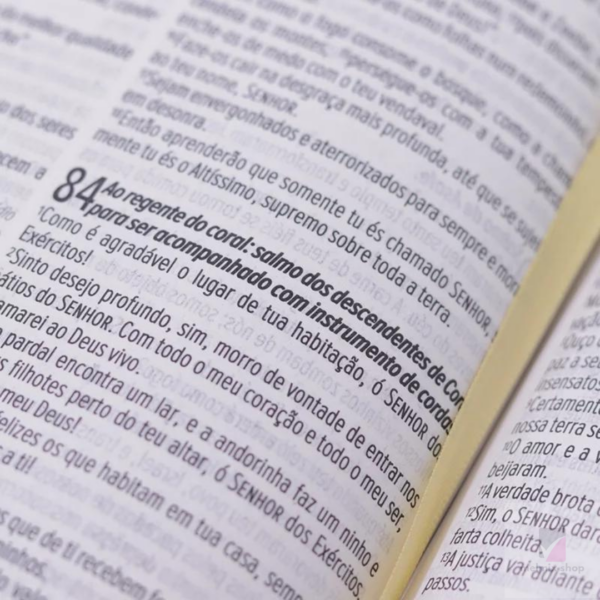 melhor qualidade
dos seres
como o fogo consome o bosque, como a
os montes, persegue-os com a tua
enche-os de medo com o teu vendaval.
Faze-os cair na desgraça mais profunda, até que se
ao teu nome, SENHOR.
Sejam envergonhados e aterrorizados para sempre e
em desonra.
Então aprenderão que somente tu és chamado SENHOR,
mente tu és o Altíssimo, supremo sobre toda a terra.
84 Ao regente do coral: salmo dos descendentes de
para ser acompanhado com instrumento de cordas
1Como é agradável o lugar de tua habitação, ó SENHOR dos
Exércitos!
2Sinto desejo profundo, sim, morro de vontade de entrar nos
átios do SENHOR. Com todo o meu coração e todo o meu ser,
amarei ao Deus vivo.
pardal encontra um lar, e a andorinha faz um ninho e
filhotes perto do teu altar, ó SENHOR dos Exércitos,
meu Deus!
felizes os que habitam em tua casa,
a ti!
os que de ti recebem
paz a seu
insensatos
Certamente
nossa terra
10O amor e a
beijaram.
11A verdade brota
12Sim, o SENHOR dará
farta colheita.
13A justiça vai adiante
passos.
shop